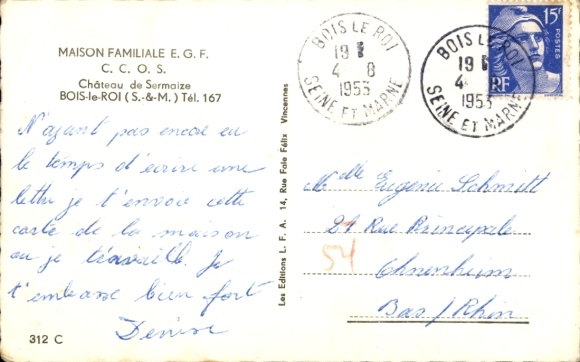 MAISON FAMILIALE E. G. F.
C. C. O. S.
Château de Sermaize
BOIS-le-ROI (S.-& M.) Tél. 167
N'ayant pas encore eu
le temps d'écrire une
lettre je t'envoie cette
carte de la maison
où je travaille. Je
t'embrasse bien fort
Denise
312 C
Les Editions L. F. A. 14, Rue Faie Félix Vincennes
BOIS LE ROI
19
4 8
1953
SEINE ET MARNE
BOIS LE ROI
19
4
1953
SEINE ET MARNE
15F
POSTES
RF
Melle Eugénie Schmitt
21 Rue Principale
54
Ohnenheim
Bas/Rhin